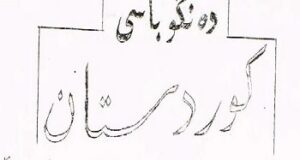 ده نگو باسی
كوردستان